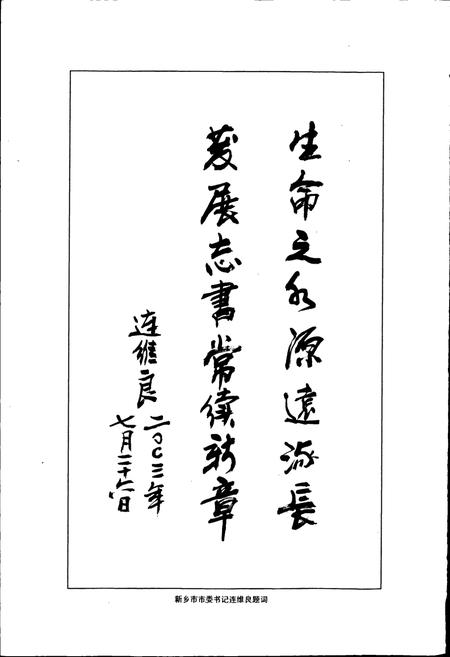 生命之水源遠流長
發展志書常續新章
連維良
二〇〇三年
七月二十六日
新乡市市委书记连维良题词